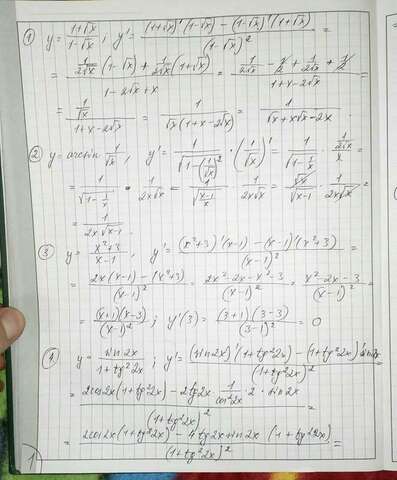 ① y = (1+√x)/(1-√x) ; y' = ((1+√x)'(1-√x) - (1-√x)'(1+√x))/(1-√x)² =
= (1/(2√x) (1-√x) + 1/(2√x) (1+√x))/(1-2√x+x) = (1/(2√x) - 1/2 + 1/(2√x) + 1/2)/(1+x-2√x) =
= (1/√x)/(1+x-2√x) = 1/(√x(1+x-2√x)) = 1/(√x+x√x-2x) .
② y = arcsin 1/√x , y' = 1/√(1-(1/√x)²) · (1/√x)' = 1/√(1-1/x) · (1/(2√x))/x =
= 1/√(1-1/x) · 1/(2x√x) = 1/√((x-1)/x) · 1/(2x√x) = √x/√(x-1) · 1/(2x√x) =
= 1/(2x√(x-1)) .
③ y = (x²+3)/(x-1) , y' = ((x²+3)'(x-1) - (x-1)'(x²+3))/(x-1)² =
= (2x(x-1) - (x²+3))/(x-1)² = (2x²-2x-x²-3)/(x-1)² = (x²-2x-3)/(x-1)² =
= ((x+1)(x-3))/(x-1)² ; y'(3) = ((3+1)(3-3))/(3-1)² = 0
④ y = sin2x/(1+tg²2x) ; y' = ((sin2x)'(1+tg²2x) - (1+tg²2x)'sin2x)/(1+tg²2x)² =
= (2cos2x(1+tg²2x) - 2tg2x · 1/cos²2x · 2 · sin2x)/(1+tg²2x)² =
= (2cos2x(1+tg²2x) - 4tg2x·sin2x (1+tg²2x))/(1+tg²2x)² =
1